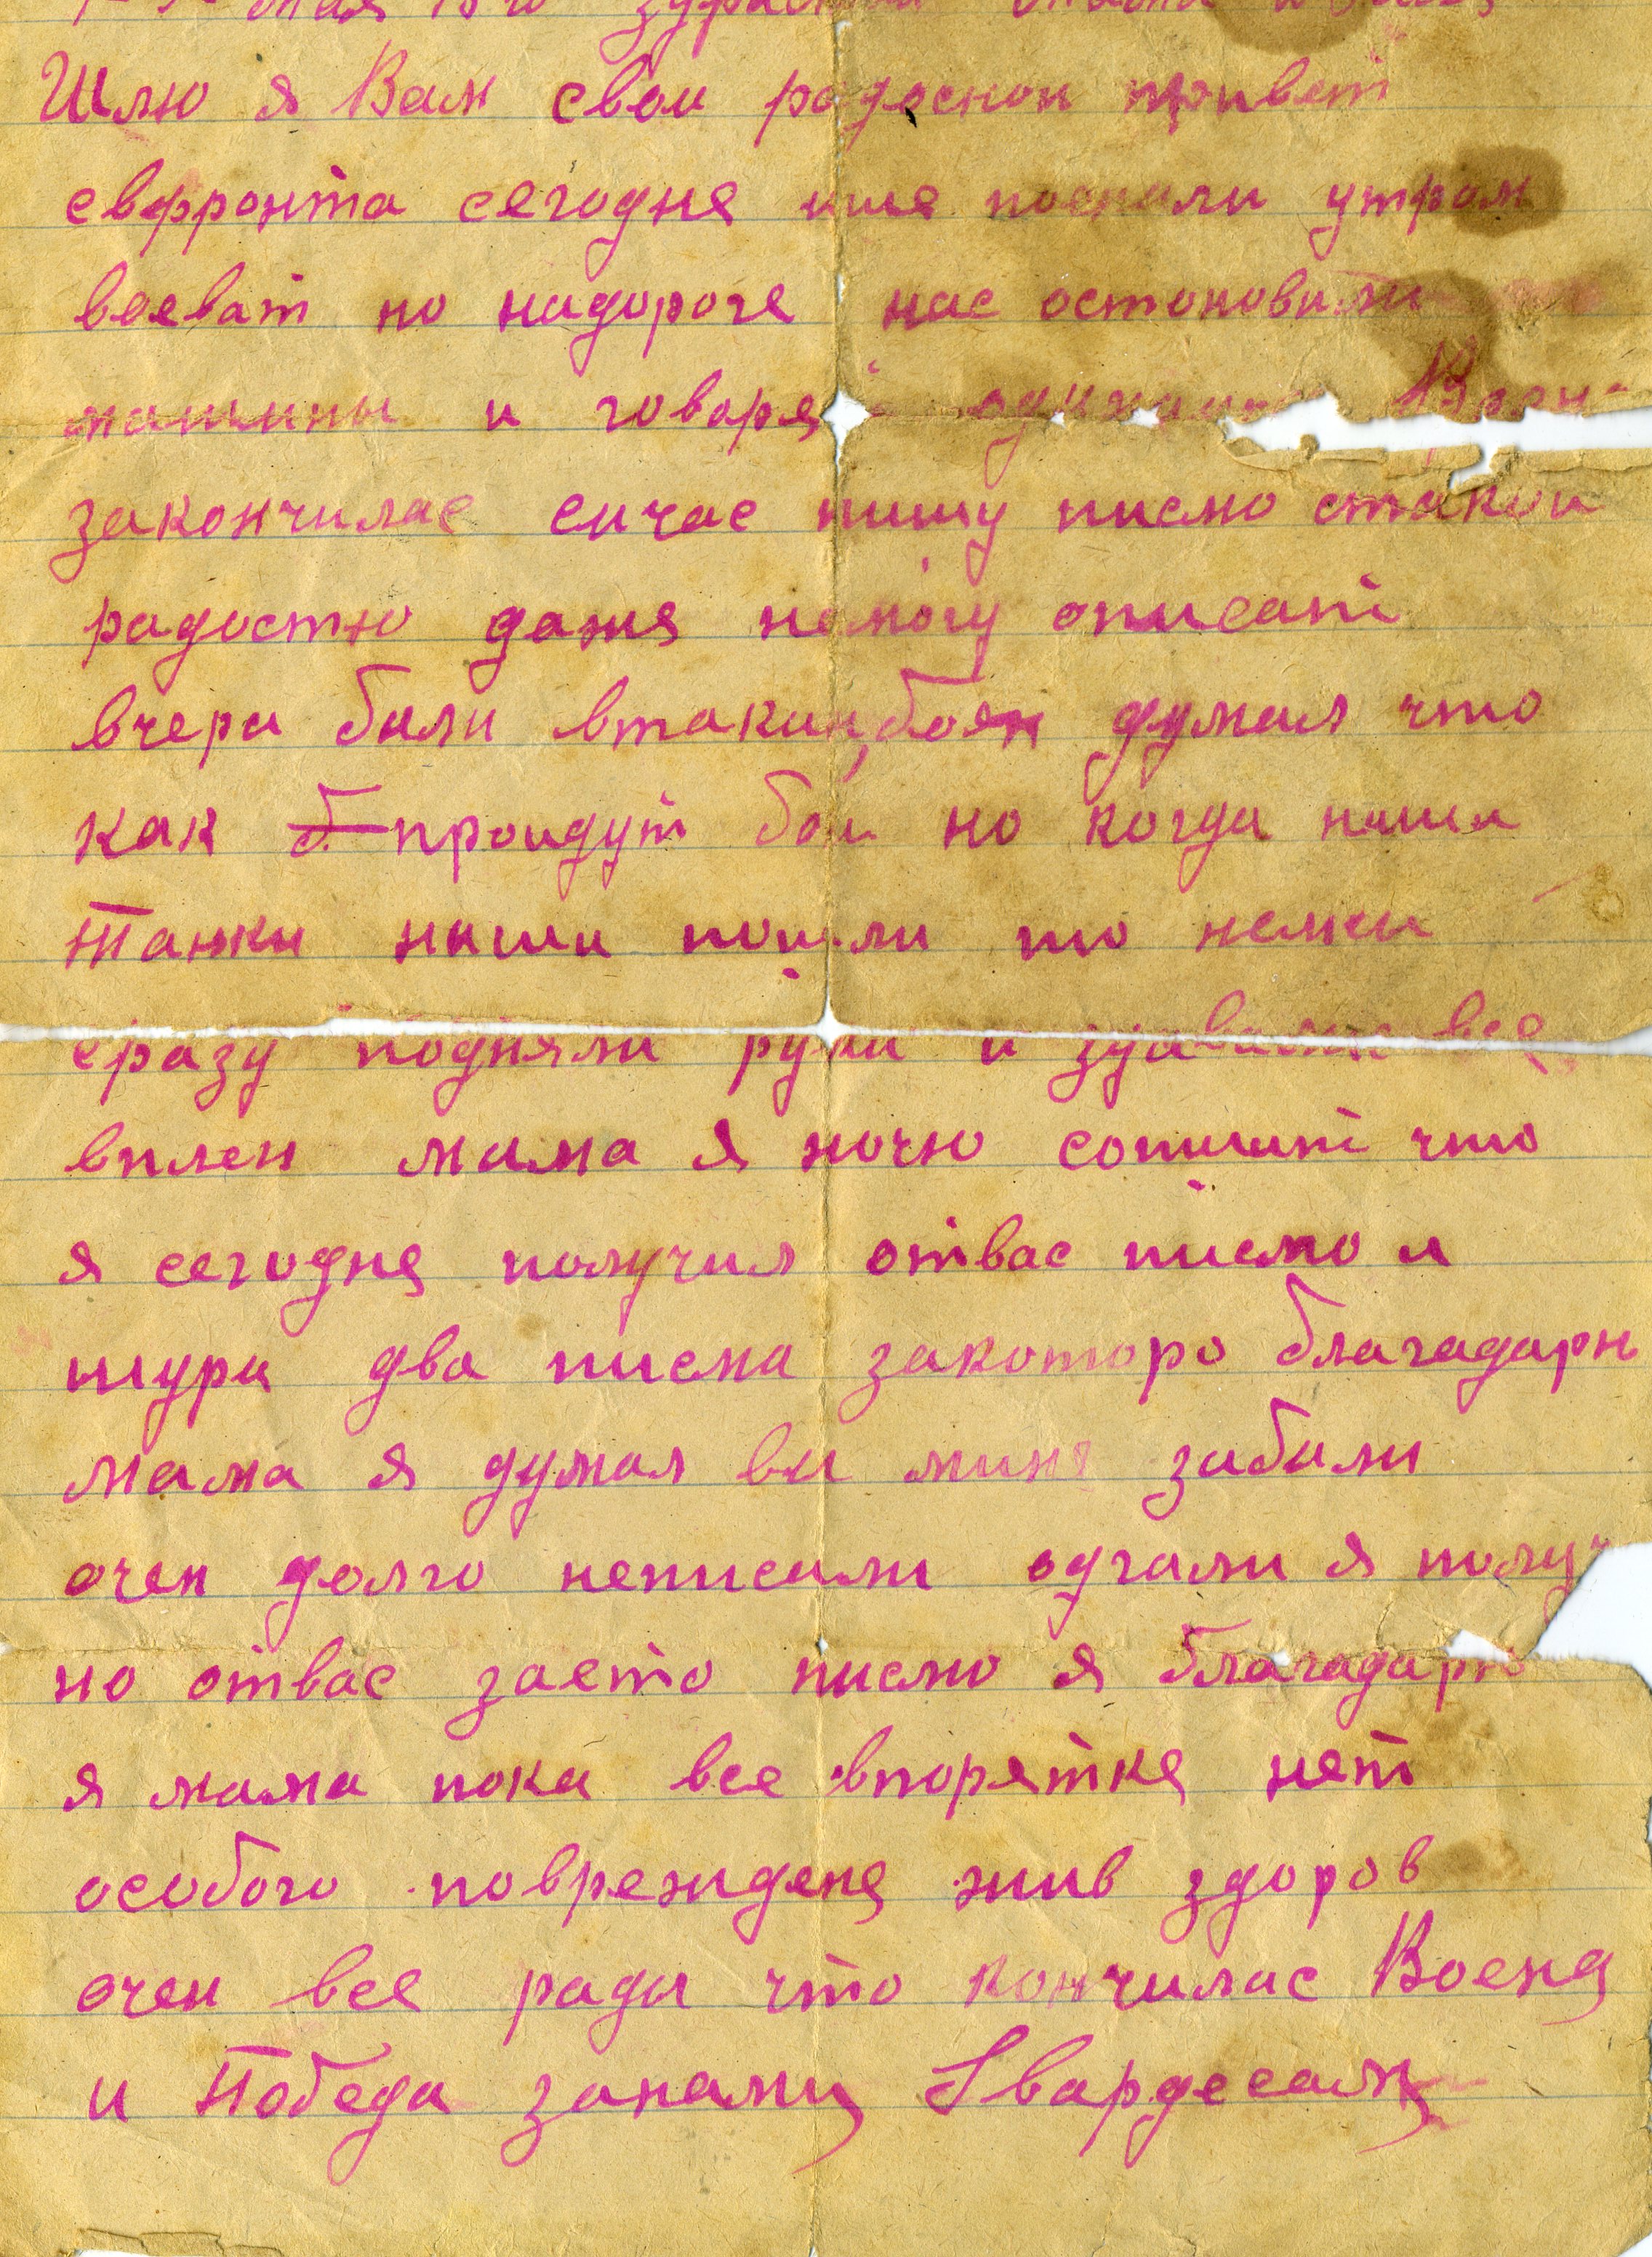 мая
Шлю я Вам свои радоснои привет
свфронта сегодня поехали утром
воеват но надороге нас остоновили
машины и говоря
закончилас сичас пишу писмо стакои
радостю дажя немогу описат
вчера били втакии боях думал что
как проидут бои но когда наши
Танки наши пошли то немси
сразу подняли руки и здавалис все
вплен мама я ночю что
я сегодня получил отвас писмо и
шура два писма закоторо благадарн
мама я думал ви миня забили
очен долго неписали я получ
но отвас заето писмо я благадарю
я мама пока все впорятке нет
особого поврежденя жив здоров
очен все ради что кончилас Воена
и Победа занами Гвардесами